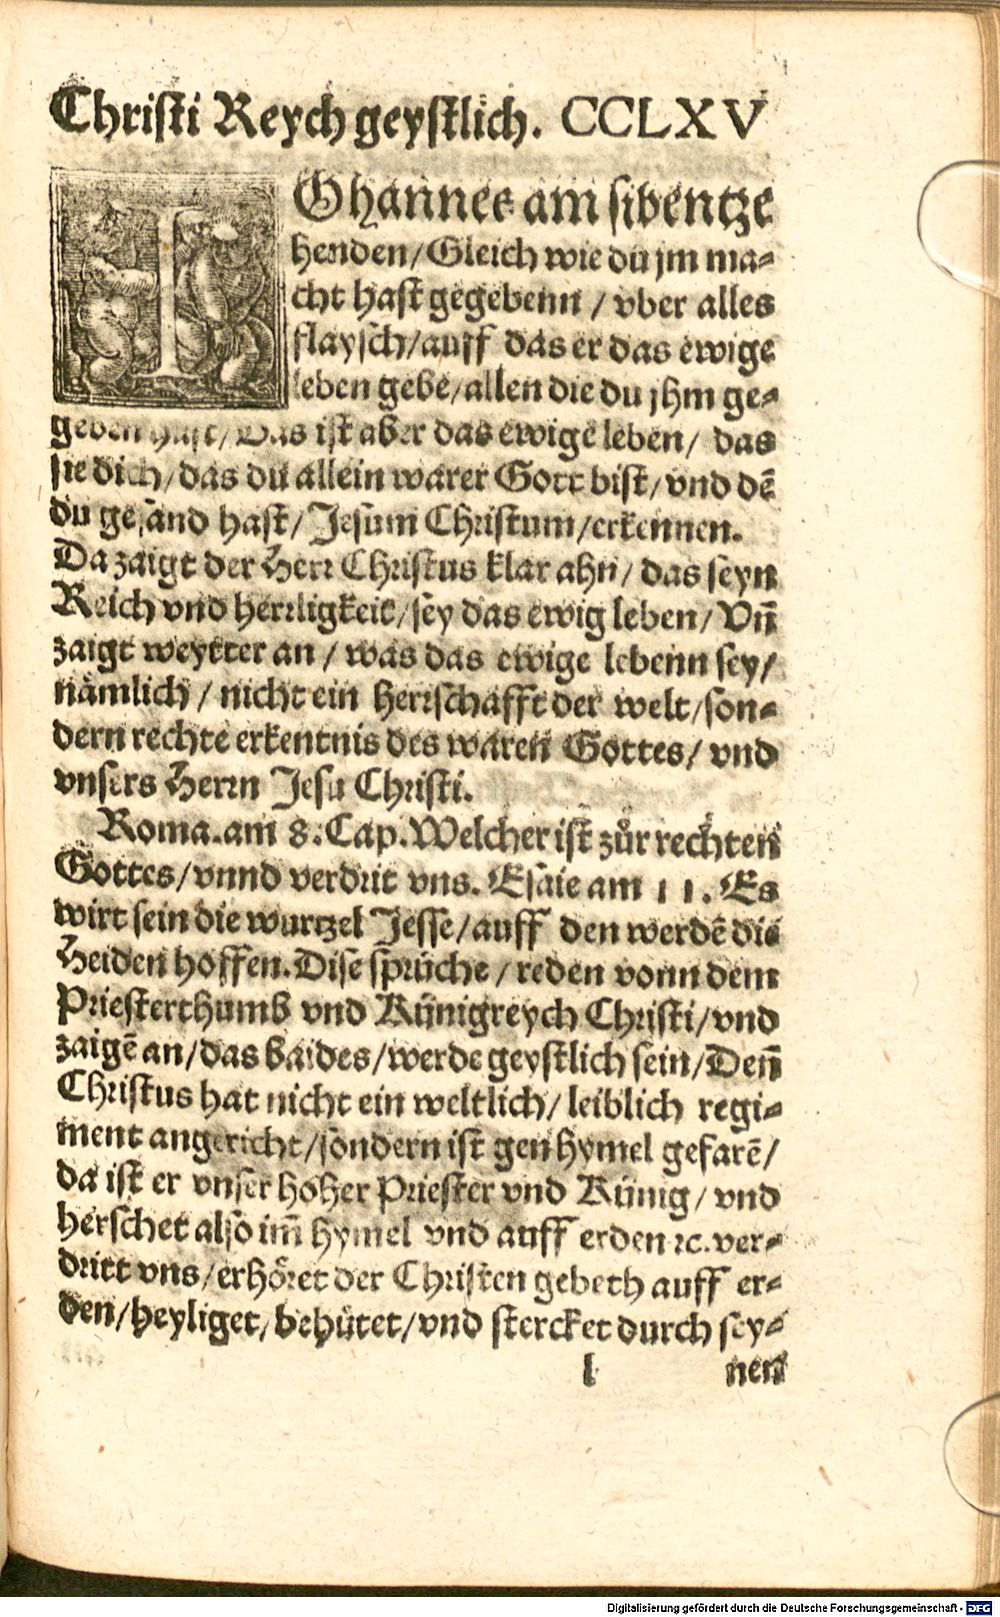 Christi Reych geystlich. CCLXV
IOhannes am sibentze
henden/Gleich wie du jm ma⸗
cht hast gegebenn / vber alles
flaysch/auff das er das ewige
leben gebe/allen die du jhm ge⸗
geben hast/Das ist aber das ewige leben/ das
sie dich/das du allein warer Gott bist/vnd dē
du gesand hast/Jesum Christum/erkennen.
Da zaigt der Herr Christus klar ahn/ das seyn
Reich vnd herrligkeit/sey das ewig leben/ Vñ
zaigt weytter an / was das ewige lebenn sey/
nämlich / nicht ein herrschafft der welt/son⸗
dern rechte erkentnis des waren Gottes/ vnd
vnsers Herrn Jesu Christi.
Roma.am 8.Cap.Welcher ist zůr rechten
Gottes/vnnd verdrit vns. Esaie am 11. Es
wirt sein die wurtzel Jesse/auff den werdē die
Heiden hoffen.Dise sprüche / reden vonn dem
Priesterthumb vnd Künigreych Christi/vnd
zaigē an/das baides/werde geystlich sein/Deñ
Christus hat nicht ein weltlich/ leiblich regi⸗
ment angericht/sondern ist gen hymel gefarē/
da ist er vnser hoher Priester vnd Künig/ vnd
herschet also im̄ hymel vnd auff erden ⁊c.ver⸗
dritt vns/erhöret der Christen gebeth auff er⸗
den/heyliget/behütet/vnd stercket durch sey⸗
l nen
Digitalisierung gefördert durch die Deutsche Forschungsgemeinschaft - DFG